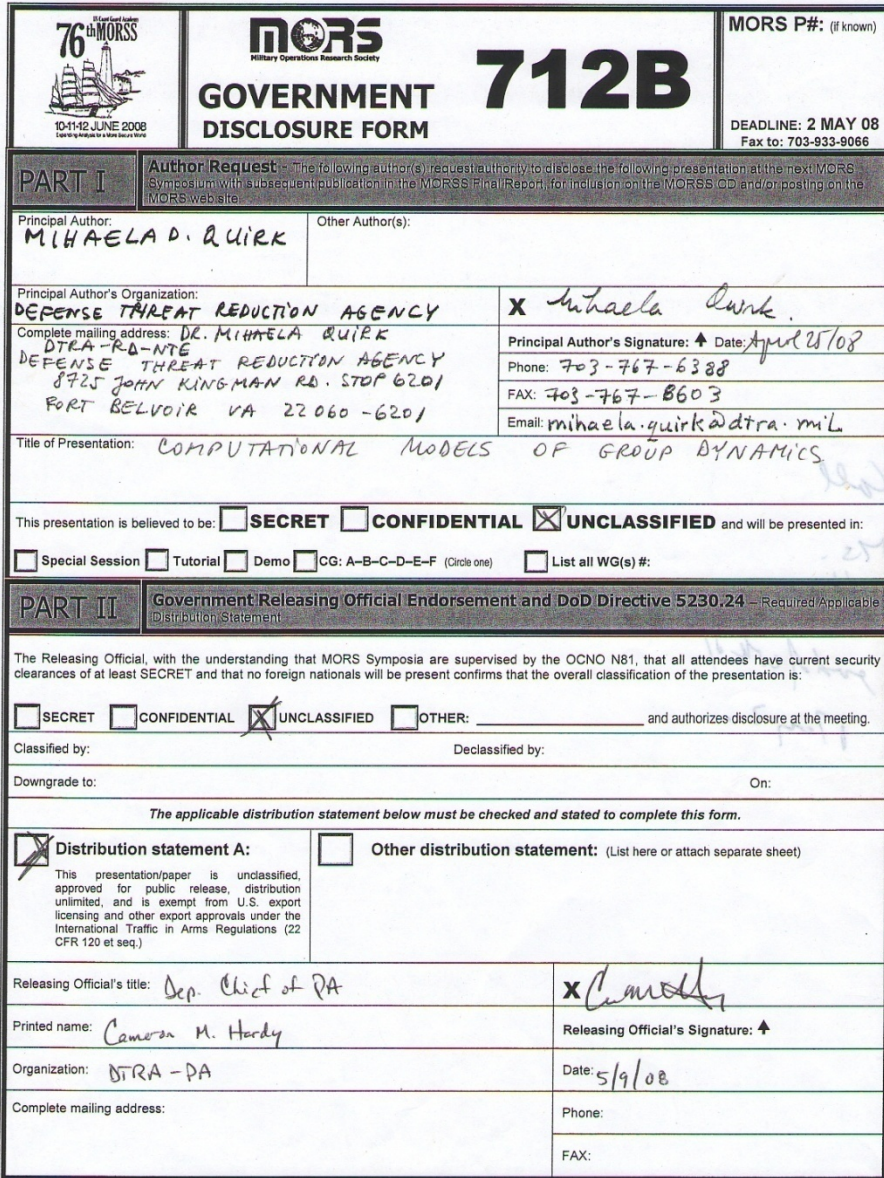 US Coast Guard Academy
76thMORSS
10-11-12 JUNE 2008
Expanding Analysis for a More Secure World
MORS
Military Operations Research Society
GOVERNMENT
DISCLOSURE FORM
712B
MORS P#: (if known)
DEADLINE: 2 MAY 08
Fax to: 703-933-9066
PART I
Author Request - The following author(s) request authority to disclose the following presentation at the next MORS
Symposium with subsequent publication in the MORSS Final Report, for inclusion on the MORSS CD and/or posting on the
MORS web site.
Principal Author:
MIHAELA D. QUIRK
Other Author(s):
Principal Author's Organization:
DEFENSE THREAT REDUCTION AGENCY
Complete mailing address: DR. MIHAELA QUIRK
DTRA-RD-NTE
DEFENSE THREAT REDUCTION AGENCY
8725 JOHN KINGMAN RD. STOP 6201
FORT BELVOIR VA 22060-6201
X Mihaela Quirk.
Principal Author's Signature: ↑ Date: April 25/08
Phone: 703-767-6388
FAX: 703-767-8603
Email: mihaela.quirk@dtra.mil
Title of Presentation: COMPUTATIONAL MODELS OF GROUP DYNAMICS
This presentation is believed to be: SECRET CONFIDENTIAL UNCLASSIFIED and will be presented in:
Special Session Tutorial Demo CG: A–B–C–D–E–F (Circle one) List all WG(s) #:
PART II
Government Releasing Official Endorsement and DoD Directive 5230.24 – Required Applicable
Distribution Statement
The Releasing Official, with the understanding that MORS Symposia are supervised by the OCNO N81, that all attendees have current security
clearances of at least SECRET and that no foreign nationals will be present confirms that the overall classification of the presentation is:
SECRET CONFIDENTIAL UNCLASSIFIED OTHER: and authorizes disclosure at the meeting.
Classified by:
Declassified by:
Downgrade to:
On:
The applicable distribution statement below must be checked and stated to complete this form.
Distribution statement A:
This presentation/paper is unclassified,
approved for public release, distribution
unlimited, and is exempt from U.S. export
licensing and other export approvals under the
International Traffic in Arms Regulations (22
CFR 120 et seq.)
Other distribution statement: (List here or attach separate sheet)
Releasing Official's title: Dep. Chief of PA
Printed name: Cameron M. Hardy
Organization: DTRA-PA
Complete mailing address:
X
Releasing Official's Signature: ↑
Date: 5/9/08
Phone:
FAX: